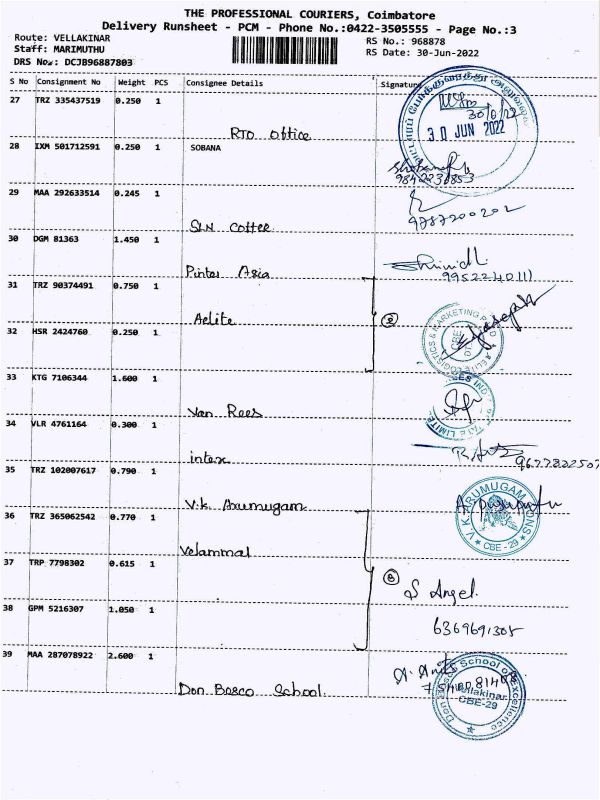 THE PROFESSIONAL COURIERS, Coimbatore
Delivery Runsheet - PCM - Phone No.:0422-3505555 - Page No.:3
Route: VELLAKINAR
RS No.: 968878
Staff: MARIMUTHU
RS Date: 30-Jun-2022
DRS No.: DCJB96887803
S No Consignment No Weight PCS Consignee Details Signature
27 TRZ 335437519 0.250 1
RTO Office
30 JUN 2022
28 IXM 501712591 0.250 1 SOBANA
29 MAA 292633514 0.245 1
SLN Coffee
9787200202
30 DGM 81363 1.450 1
Pinter Asia
9952240111
31 TRZ 90374491 0.750 1
Aelite
2
32 HSR 2424760 0.250 1
33 KTG 7106344 1.600 1
Van Rees
34 VLR 4761164 0.300 1
intex
35 TRZ 102007617 0.790 1
V.K. Arumugam
V.K. ARUMUGAM SONS
CBE-29
36 TRZ 365062542 0.770 1
Velammal
37 TRP 7798302 0.615 1
S Angel.
38 GPM 5216307 1.050 1
39 MAA 287078922 2.600 1
Don Bosco School.
Don Bosco School of Excellence
Vellakinar
CBE-29